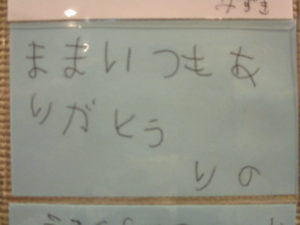 みずき
ままいつもあ
りがとう
りの